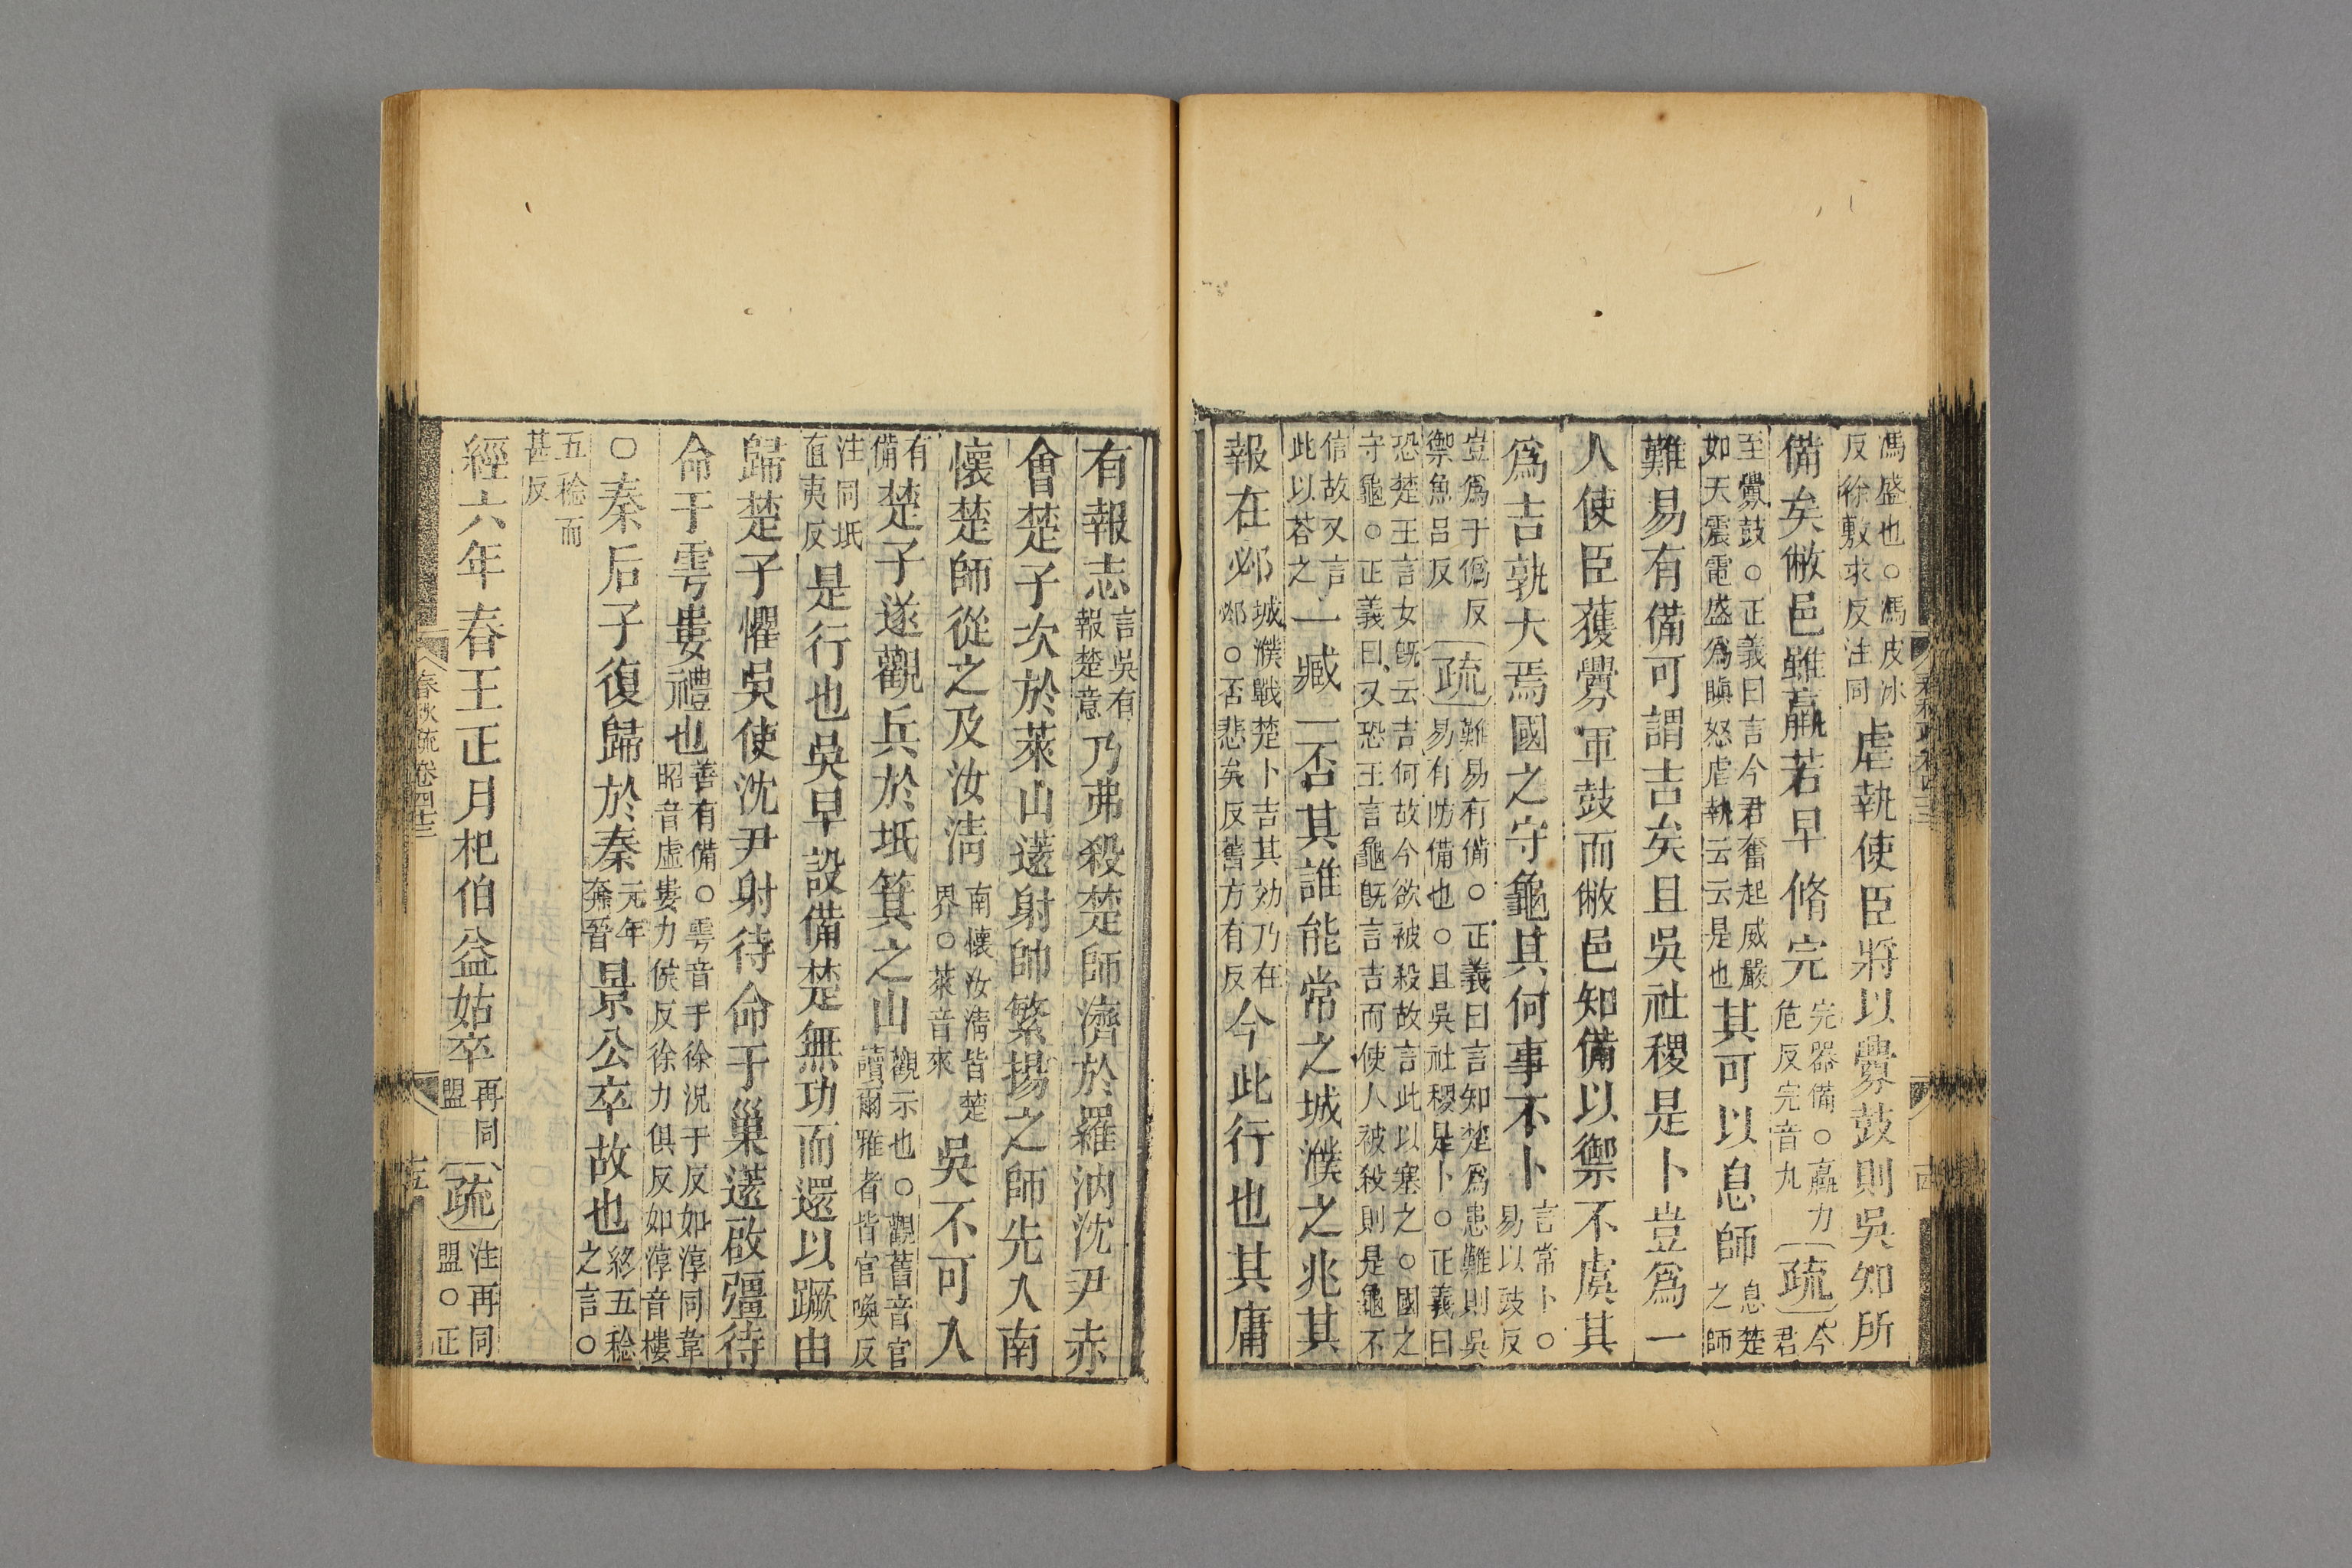 馮盛也○馮皮冰反徐敷求反注同虐執使臣將以釁鼓則吳知所
備矣敝邑雖羸若早脩完完器備○羸力危反完音丸疏今君
至釁鼓○正義曰言今君奮起威嚴如天震電盛爲瞋怒虐執云云是也其可以息師息楚之師
難易有備可謂吉矣且吳社稷是卜豈爲一
人使臣獲釁軍鼓而敝邑知備以禦不虞其
爲吉孰大焉國之守龜其何事不卜言常卜○易以豉反
豈爲于僞反禦魚呂反疏難易有備○正義曰言知楚爲患難則吳易有防備也○且吳社稷是卜○正義曰
恐楚王言女旣云吉何故今欲被殺故言此以塞之○國之守龜○正義曰又恐王言龜旣言吉而使人被殺則是龜不
信故又言此以荅之一臧一否其誰能常之城濮之兆其
報在邲城濮戰楚卜吉其効乃在邲○否悲矣反舊方有反今此行也其庸
有報志言吳有報楚意乃弗殺楚師濟於羅汭沈尹赤
會楚子次於萊山薳射帥繁揚之師先入南
懷楚師從之及汝淸南懷汝淸皆楚界○萊音來吳不可入
有備楚子遂觀兵於坻箕之山觀示也○觀舊音官讀爾雅者皆官喚反
注同坻直夷反是行也吳早設備楚無功而還以蹶由
歸楚子懼吳使沈尹射待命于巢薳啟彊待
命于雩婁禮也善有備○雩音于徐況于反如淳同韋昭音虛婁力侯反徐力俱反如淳音樓
○秦后子復歸於秦元年奔晉景公卒故也終五稔之言○
五稔而甚反
經六年春王正月杞伯益姑卒再同盟疏注再同盟○正
春秋疏卷四十三
十五